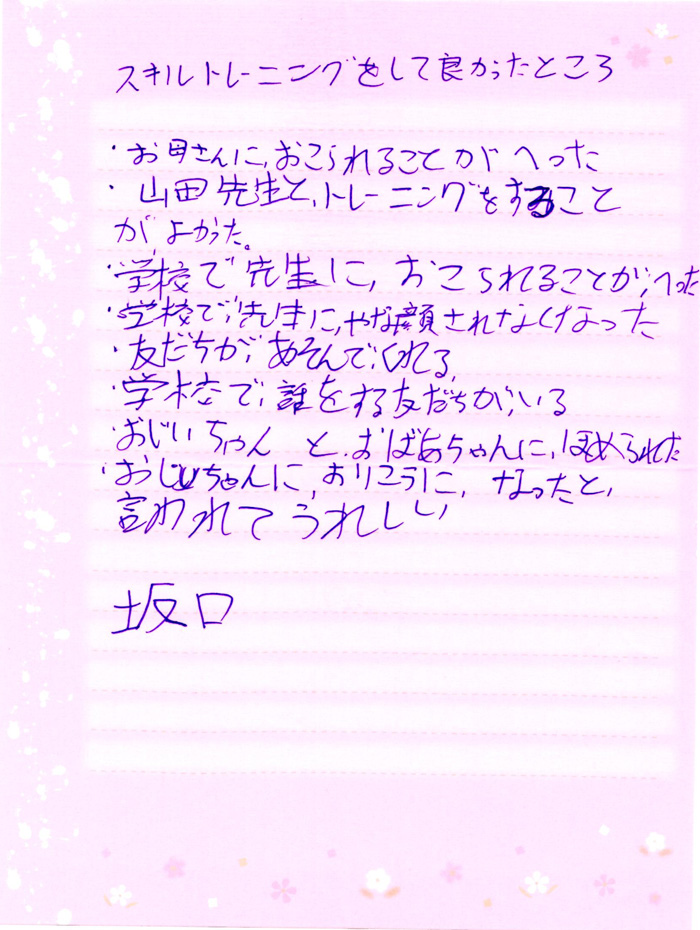 スキルトレーニングをして良かったところ
・お母さんに、おこられることが へった
・山田先生と、トレーニングをすること
が、よかった。
・学校で先生に、おこられることが、へった
・学校で、先生に、やな顔されなくなった
・友だちが、あそんで、くれる、
・学校で、誰をする友だちが、いる
・おじいちゃん と、おばあちゃんに、ほめられた
・おじいちゃんに、おりこうに、なったと、
言われてうれしい
坂口